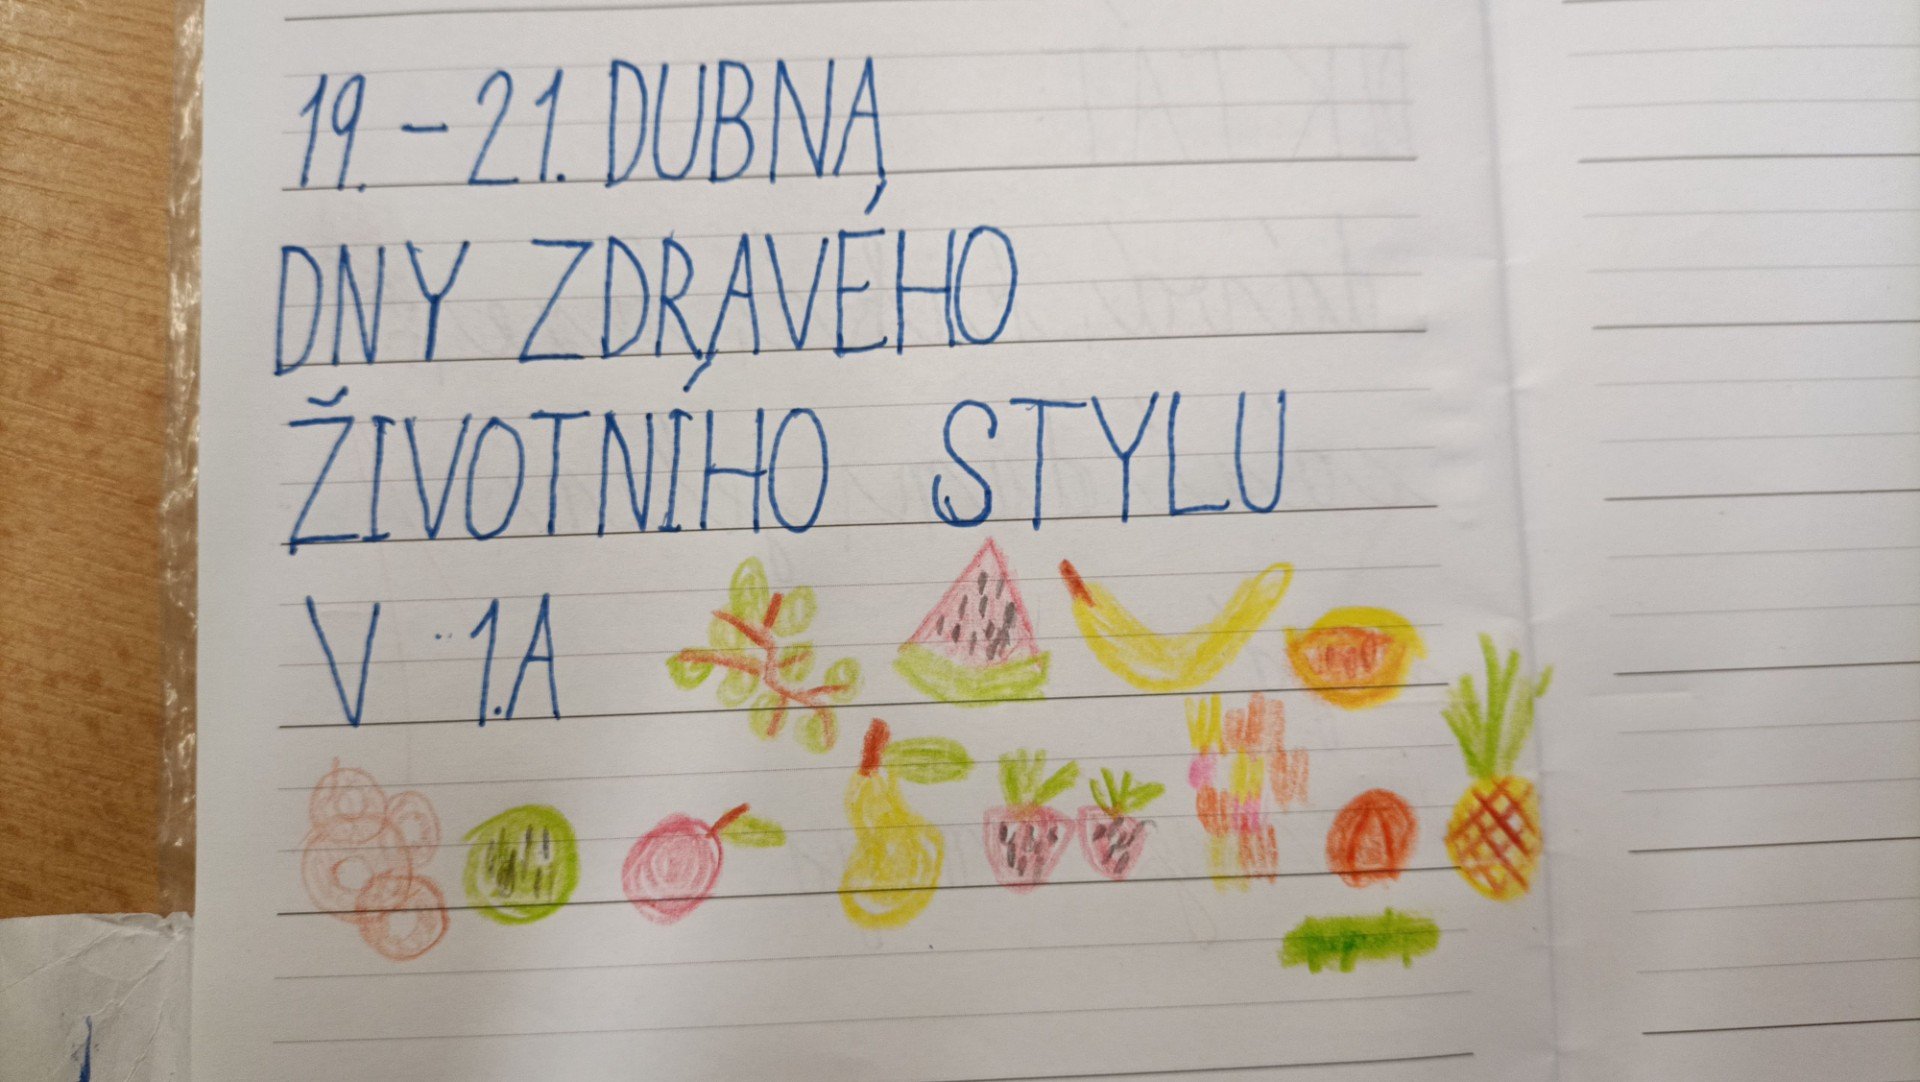 19. - 21. DUBNA
DNY ZDRAVÉHO
ŽIVOTNÍHO STYLU
V 1.A